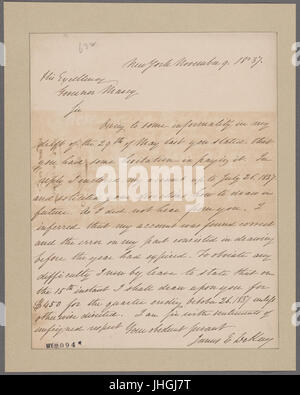 New York November 9. 1837.
His Excellency
Governor Marcy
Sir
Owing to some informality in my
draft of the 29th of May last you stated that
you have some hesitation in paying it. In
reply I enclosed my account up to July 26 1837
and solicited instructions how to draw in
future. As I did not hear from you. I
inferred that my account was found correct
and the error on my part consisted in drawing
before the year had expired. To obviate any
difficulty I now by leave to state that on
the 15th instant I shall draw upon you for
$450 for the quarter ending October 26. 1837 unless
otherwise directed. I am sir with sentiments of
unfeigned respect Your obedient servant
James E DeKay
alamy
alamy stock photo
JHGJ7T
www.alamy.com